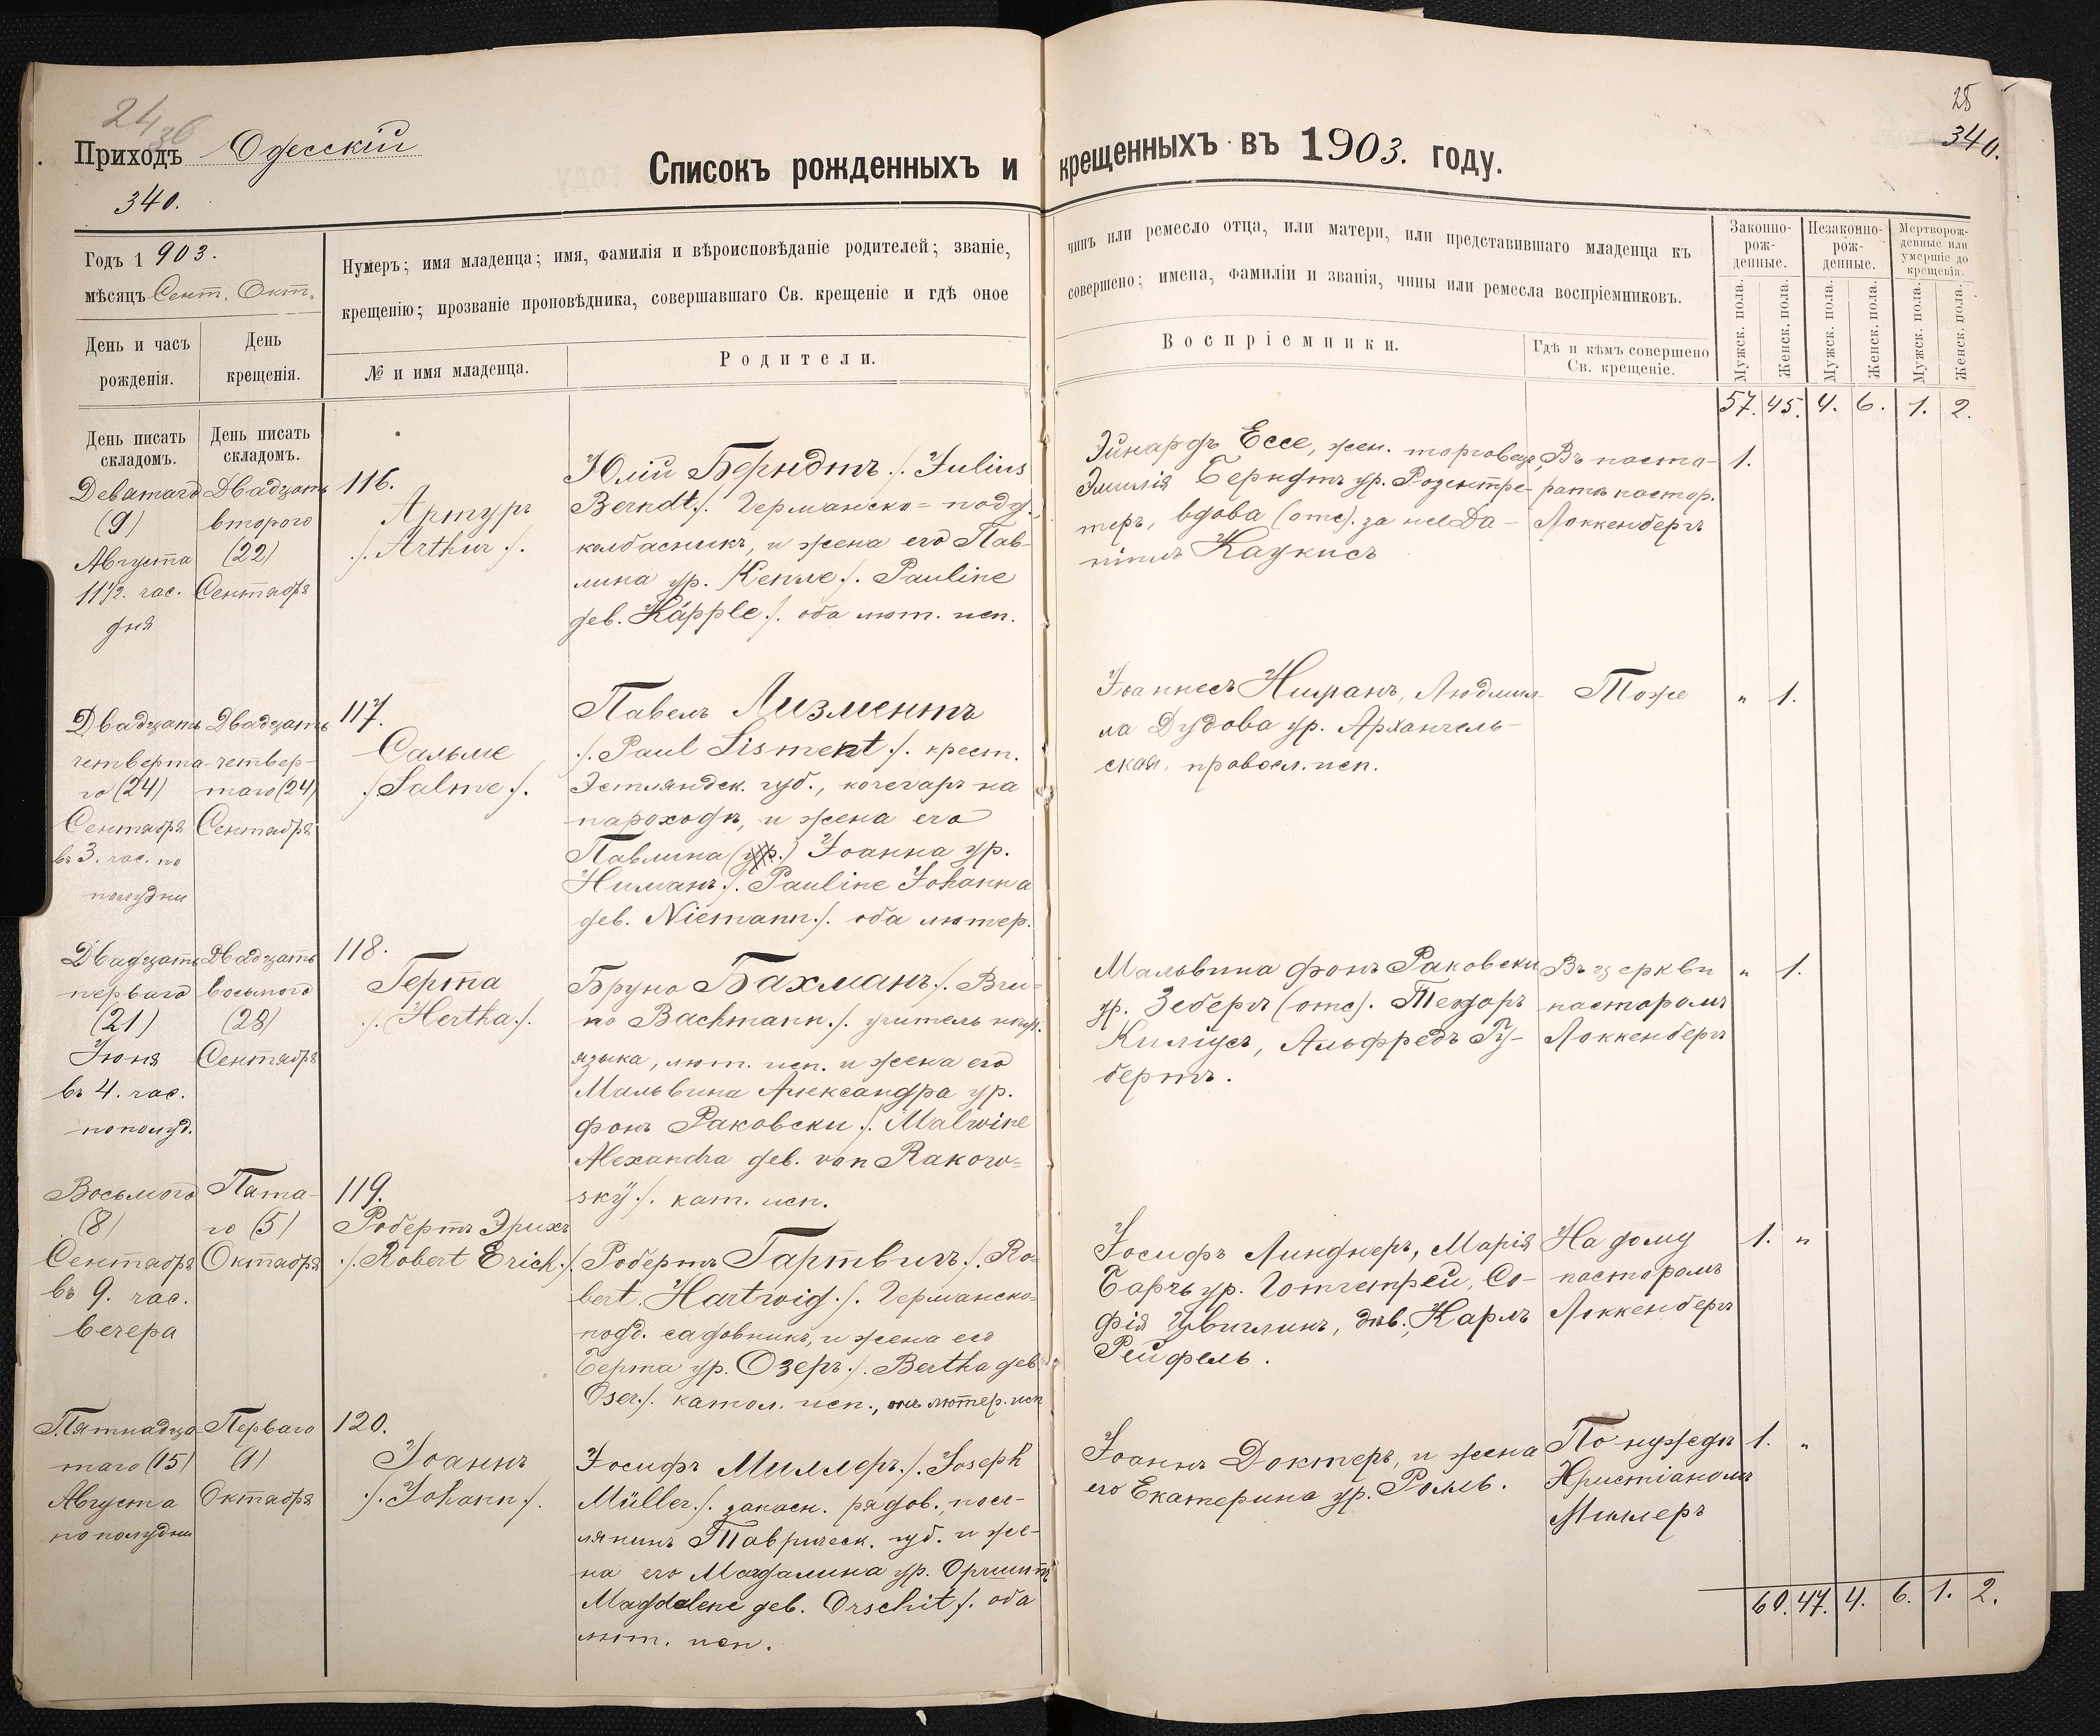 24
36
Приходъ Одесскій
340.
Списокъ рожденныхъ и
крещенныхъ въ 1903. году.
28
340.
Годъ 1903.
мѣсяцъ Сент. Окт.
День и часъ
рожденія.
День
крещенія.
Нумеръ; имя младенца; имя, фамилія и вѣроисповѣданіе родителей; званіе,
крещенію; прозваніе проповѣдника, совершавшаго Св. крещеніе и гдѣ оное
№ и имя младенца.
Родители.
чинъ или ремесло отца, или матери, или представившаго младенца къ
совершено; имена, фамиліи и званія, чины или ремесла воспріемниковъ.
Воспріемники.
Гдѣ и кѣмъ совершено
Св. крещеніе.
Законно-
рож-
денные.
Незаконно-
рож-
денные.
Мертворож-
денные или
умершіе до
крещенія.
Мужск. пола.
Женск. пола.
Мужск. пола.
Женск. пола.
Мужск. пола.
Женск. пола.
57. 45. 4. 6. 1. 2.
День писать
складомъ.
День писать
складомъ.
Девятаго
(9)
Августа
11 1/2. час.
дня
Двадцать
второго
(22)
Сентября
116.
Артуръ
./. Arthur ./.
Юлій Берндтъ ./. Julius
Berndt ./. Германско-подд.,
колбасникъ, и жена его Пав-
лина ур. Кеппле ./. Pauline
geb. Käpple ./. оба лют. исп.
Эйнардъ Ессе, жел. торговецъ,
Эмилія Берндтъ ур. Розентре-
теръ, вдова (отс). за нее Да-
ніилъ Каукисъ
Въ пасто-
ратѣ пастор.
Локкенбергъ
1.
Двадцать
четверта-
го (24)
Сентября
въ 3. час. по
полудни
Двадцать
четвер-
таго (24)
Сентября
117.
Сальме
./. Salme ./.
Павелъ Лизментъ
./. Paul Lisment ./. крест.
Эстляндск. губ., кочегаръ на
пароходѣ, и жена его
Павлина (ур.) Іоанна ур.
Ниманъ ./. Pauline Johanna
geb. Niemann ./. оба лютер.
Іоаннесъ Ниманъ, Людмил-
ла Дудова ур. Архангель-
ская, правосл. исп.
Тоже
" 1.
Двадцать
перваго
(21)
Іюня
въ 4. час.
пополуд.
Двадцать
восьмого
(28)
Сентября
118.
Герта
./. Hertha ./.
Бруно Бахманъ ./. Bru-
no Bachmann ./. учитель
языка, лют. исп. и жена его
Мальвина Александра ур.
фонъ Раковски ./. Malwine
Alexandra geb. von Rakow-
sky ./. кат. исп.
Мальвина фонъ Раковски
ур. Зебергъ (отс). Теодоръ
Киліусъ, Альфредъ Гу-
бертъ.
Въ церкви
пасторомъ
Локкенбергъ
" 1.
Восьмого
(8)
Сентября
въ 9. час.
вечера
Пята-
го (5)
Октября
119.
Робертъ Эрихъ
./. Robert Erich ./.
Робертъ Гартвигъ ./. Ro-
bert Hartwig ./. Германско-
подд. садовникъ, и жена его
Берта ур. Озеръ ./. Bertha geb.
Oser ./. катол. исп., онъ лютер. исп
Іосифъ Линднеръ, Марія
Барчъ ур. Готчетрей, Со-
фія Цвиглинъ, дѣв., Карлъ
Рейфель.
На дому
пасторомъ
Локкенбергъ
1. "
Пятнадца-
таго (15)
Августа
по полудни
Перваго
(1)
Октября
120.
Іоаннъ
./. Johann ./.
Іосифъ Миллеръ ./. Joseph
Müller ./. запасн. рядов., посе-
лянинъ Таврическ. губ. и же-
на его Магдалина ур. Оршитъ
Magdalene geb. Orschit ./. оба
лют. исп.
Іоаннъ Доктеръ, и жена
его Екатерина ур. Ролль.
По нуждѣ
Христіаномъ
Миллеръ
1. "
60. 47. 4. 6. 1. 2.